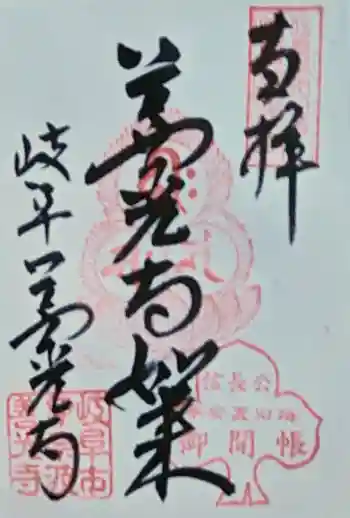 奉拝
善光寺如来
岐阜善光寺
信長公
御開帳
岐阜市
善光寺